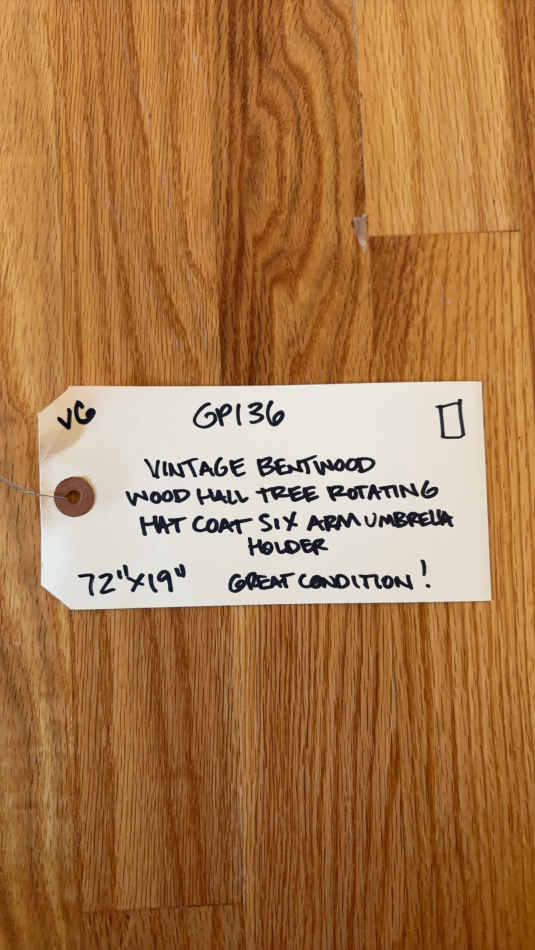 VG
GP136
VINTAGE BENTWOOD
WOOD HALL TREE ROTATING
HAT COAT SIX ARM UMBRELLA
HOLDER
72"X19" GREAT CONDITION!